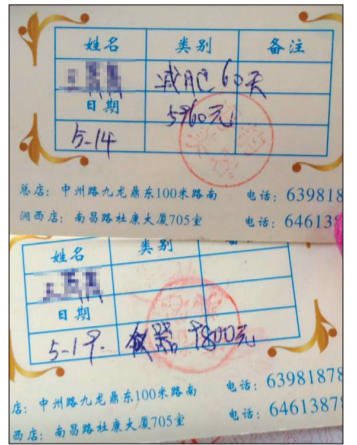 姓名 类别 备注
减肥60天
日期 5760元
5-14
总店：中州路九龙鼎东100米路南 电话：639818
涧西店：南昌路社康大厦705室 电话：646138
姓名 类别
日期
5-19. 仪器 9800元
店：中州路九龙鼎东100米路南 电话：63981878
西店：南昌路社康大厦705室 电话：64613878